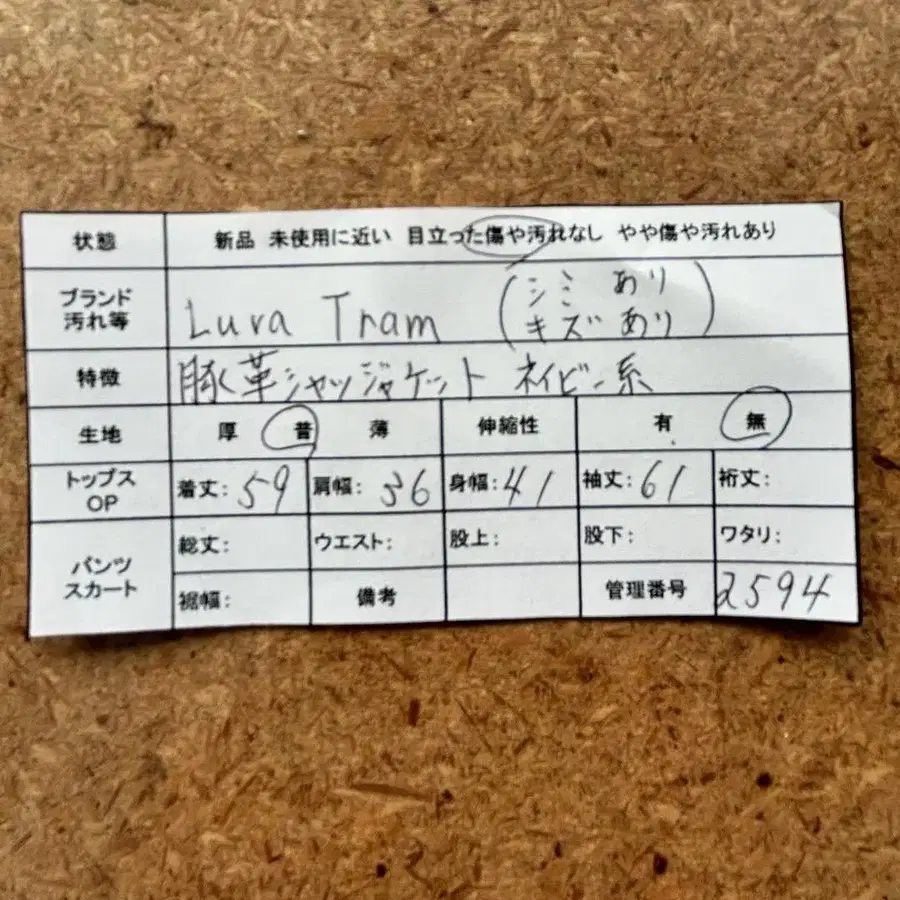 状態 新品 未使用に近い 目立った傷や汚れなし やや傷や汚れあり
ブランド 汚れ等 Lura Tram (シミあり キズあり)
特徴 豚革シャツジャケット ネイビー系
生地 厚 普 薄 伸縮性 有 無
トップス OP 着丈: 59 肩幅: 36 身幅: 41 袖丈: 61 裄丈:
パンツ スカート 総丈: ウエスト: 股上: 股下: ワタリ:
裾幅: 備考 管理番号 2594